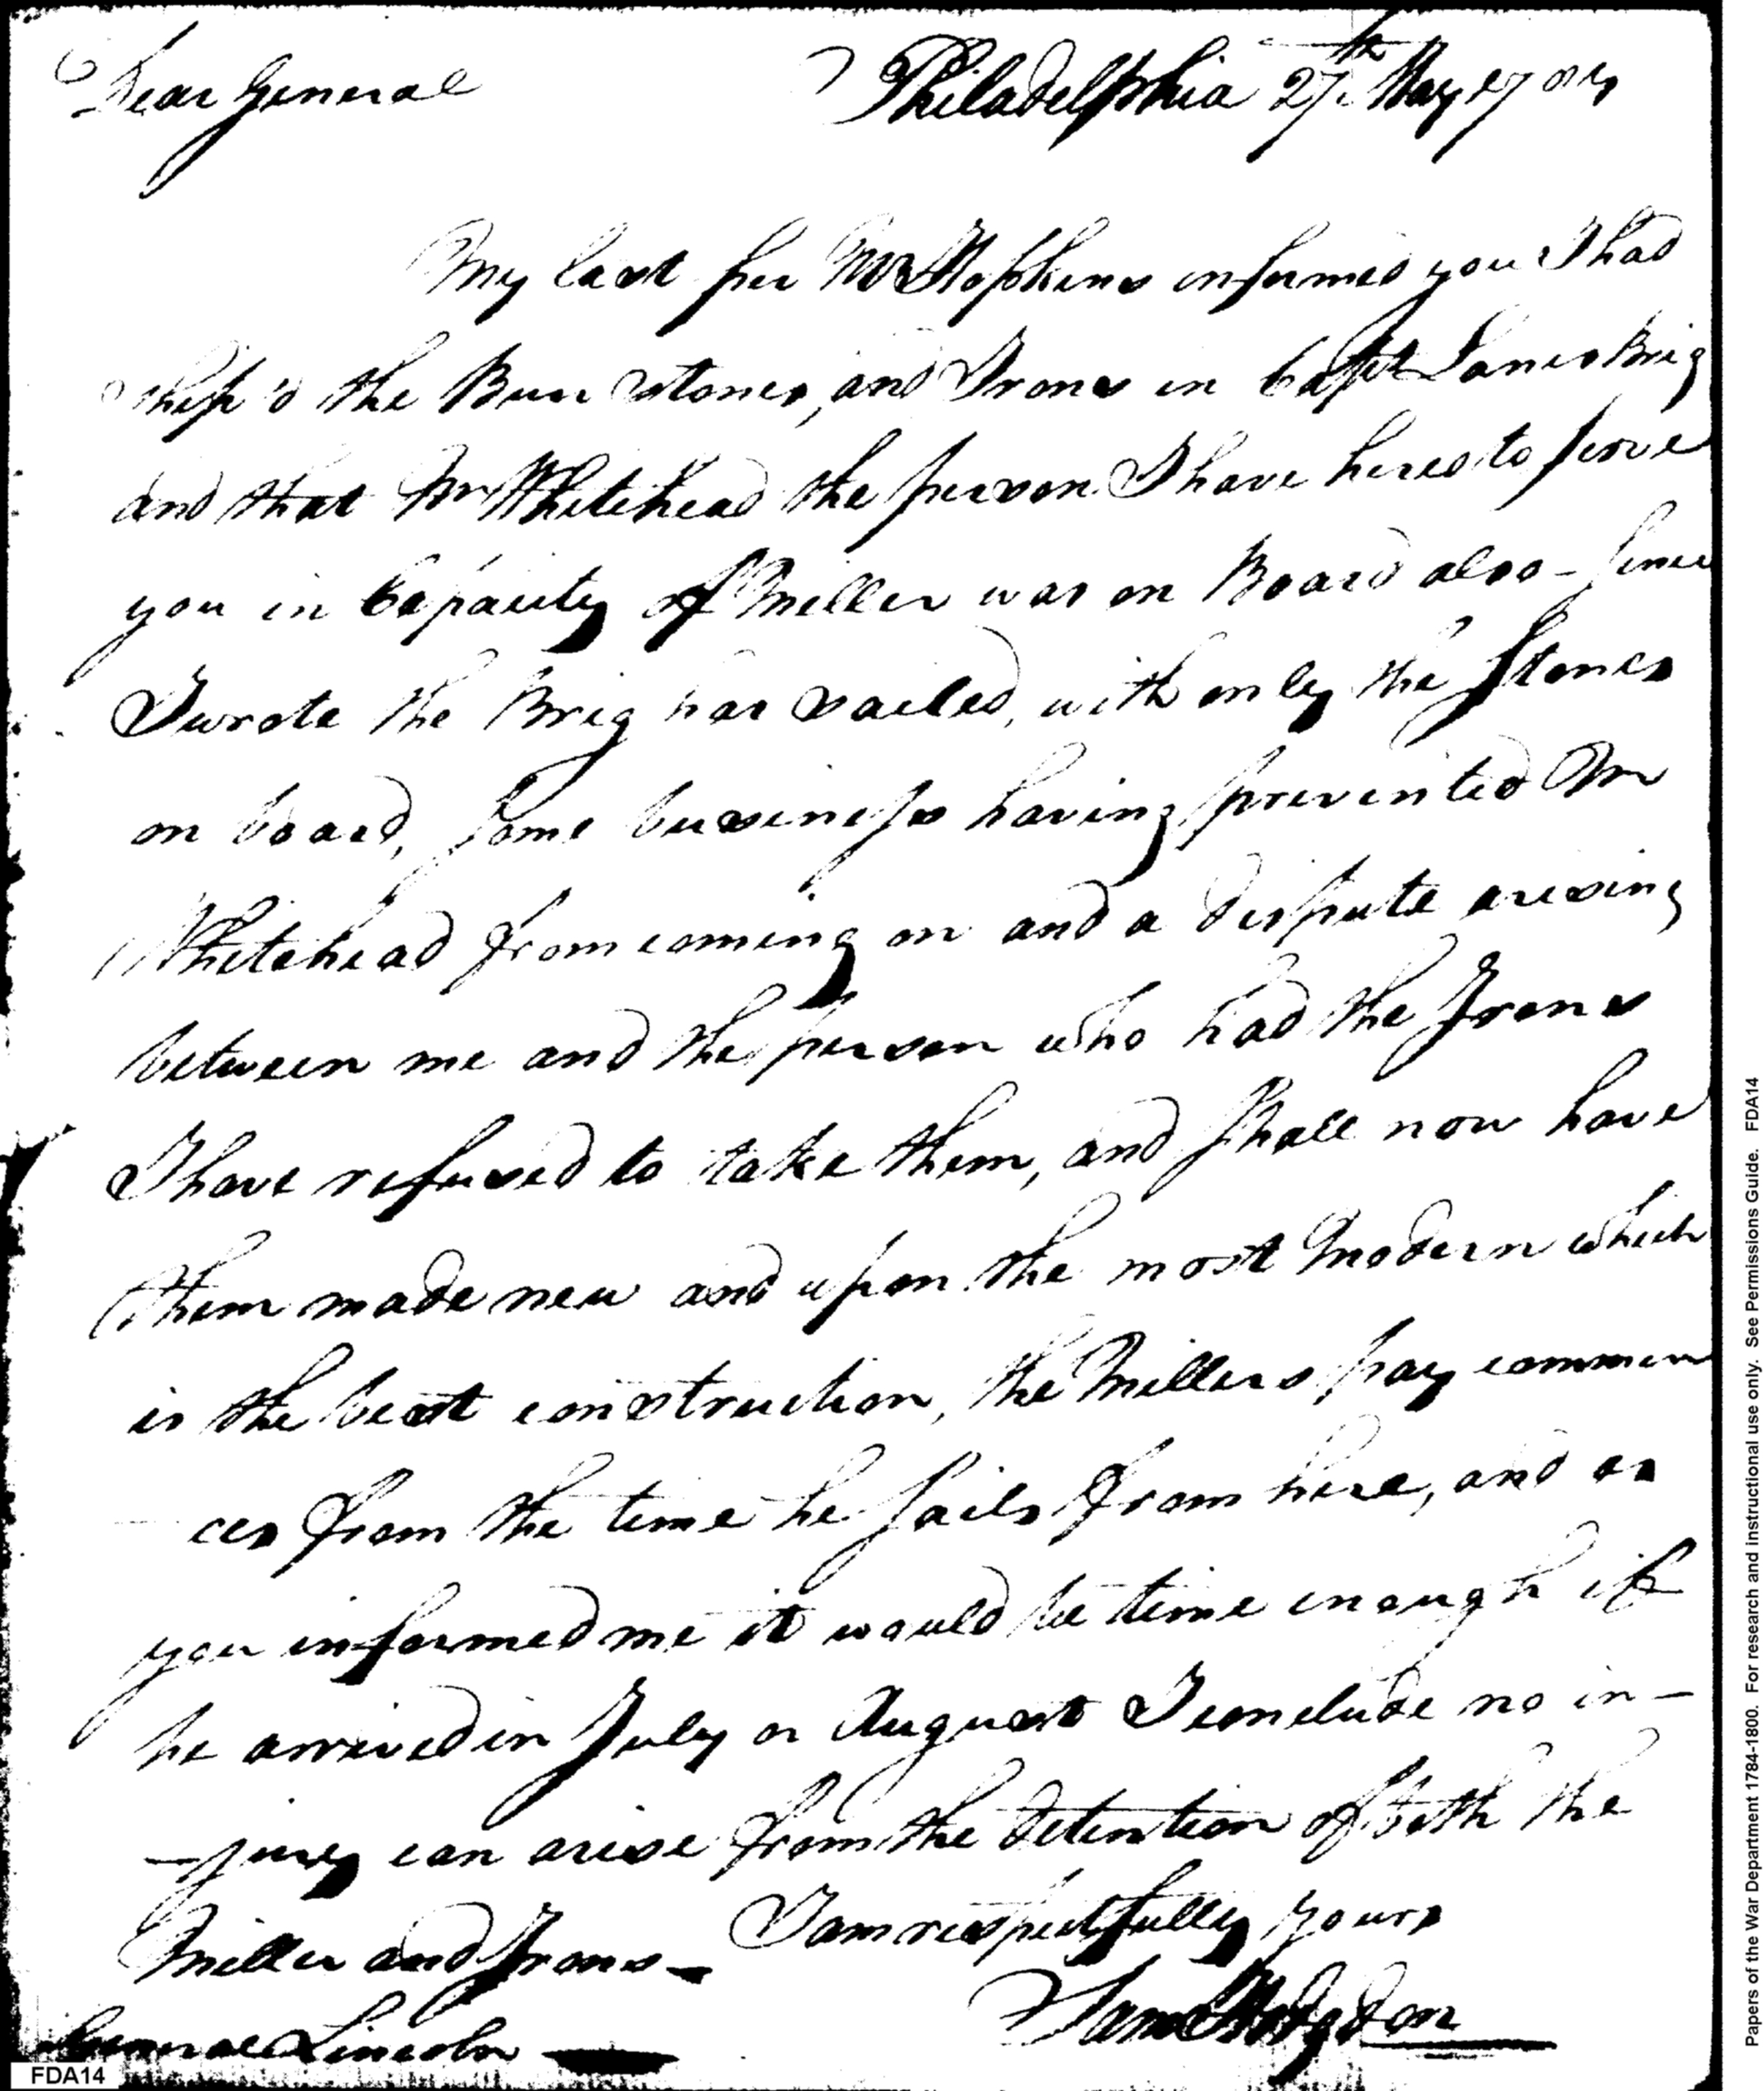 Dear General
Philadelphia 27th May
My last per Mr Hopkins informed you I had
ship'd the Burr Stones, and Irons in Capt Lanes Brig
and that Mr Whitehead the person I have hired to serve
you in Capacity of Miller was on Board also - since
I wrote the Brig has sailed, with only the Stones
on board, some business having prevented Mr
Whitehead from coming on and a dispute arising
between me and the person who had the Irons
I have refused to take them, and shall now have
them made new and upon the most modern which
is the best construction, the Millers pay commen
ces from the time he sails from here, and as
you informed me it would be time enough if
he arrived in July or August I conclude no in-
-jury can arise from the detention of both the
Miller and Irons - I am respectfully yours
Saml Hodgdon
General Lincoln
FDA14
Papers of the War Department 1784-1800. For research and instructional use only. See Permissions Guide. FDA14